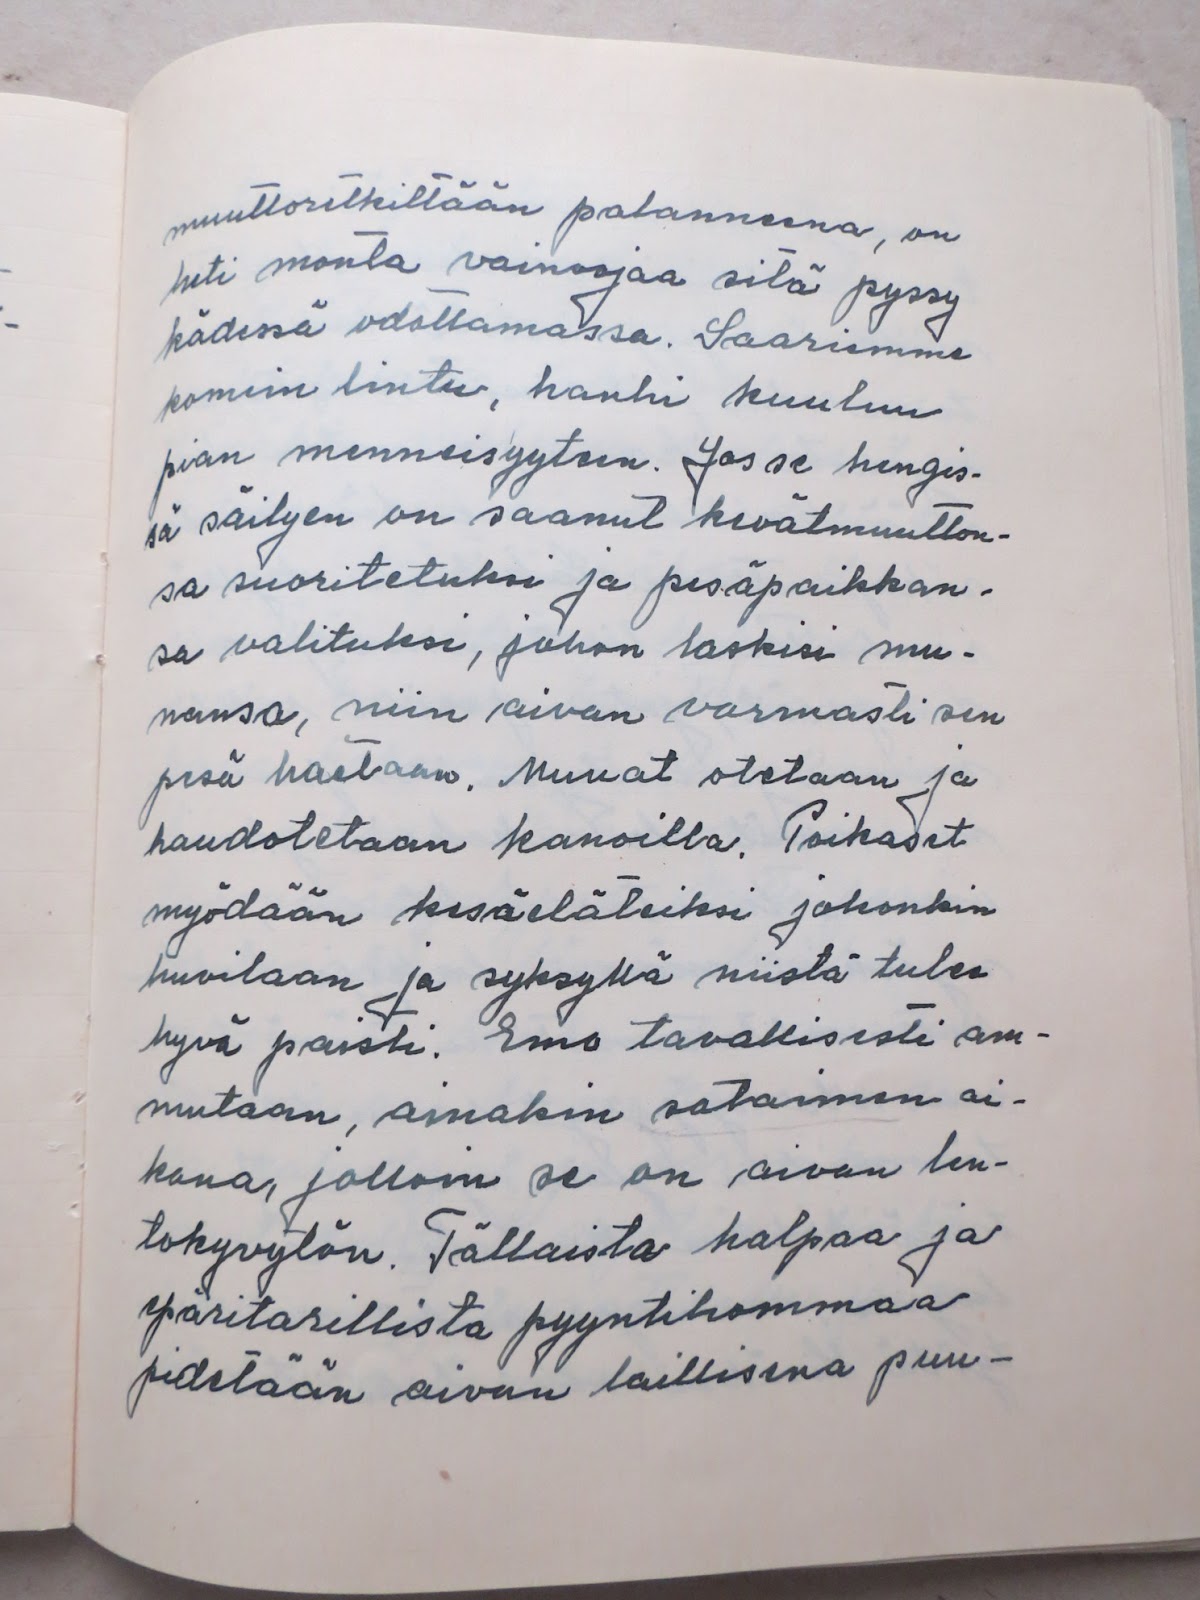 muuttoretkiltään palanneena, on
heti monta vainoojaa sitä pyssy
kädessä odottamassa. Saariemme
komein lintu, hanhi kuuluu
pian menneisyyteen. Jos se hengis-
sä säilyen on saanut kevätmuutton-
sa suoritetuksi ja pesäpaikkan-
sa valituksi, johon laskisi mu-
nansa, niin aivan varmasti sen
pesä haetaan. Munat otetaan ja
haudotetaan kanoilla. Poikaset
myödään kesäeläteiksi johonkin
huvilaan ja syksyllä niistä tulee
hyvä paisti. Emo tavallisesti am-
mutaan, ainakin sataimen ai-
kana, jolloin se on aivan len-
tokyvytön. Tällaista halpaa ja
epäritarillista pyyntihommaa
pidetään aivan laillisena puu-